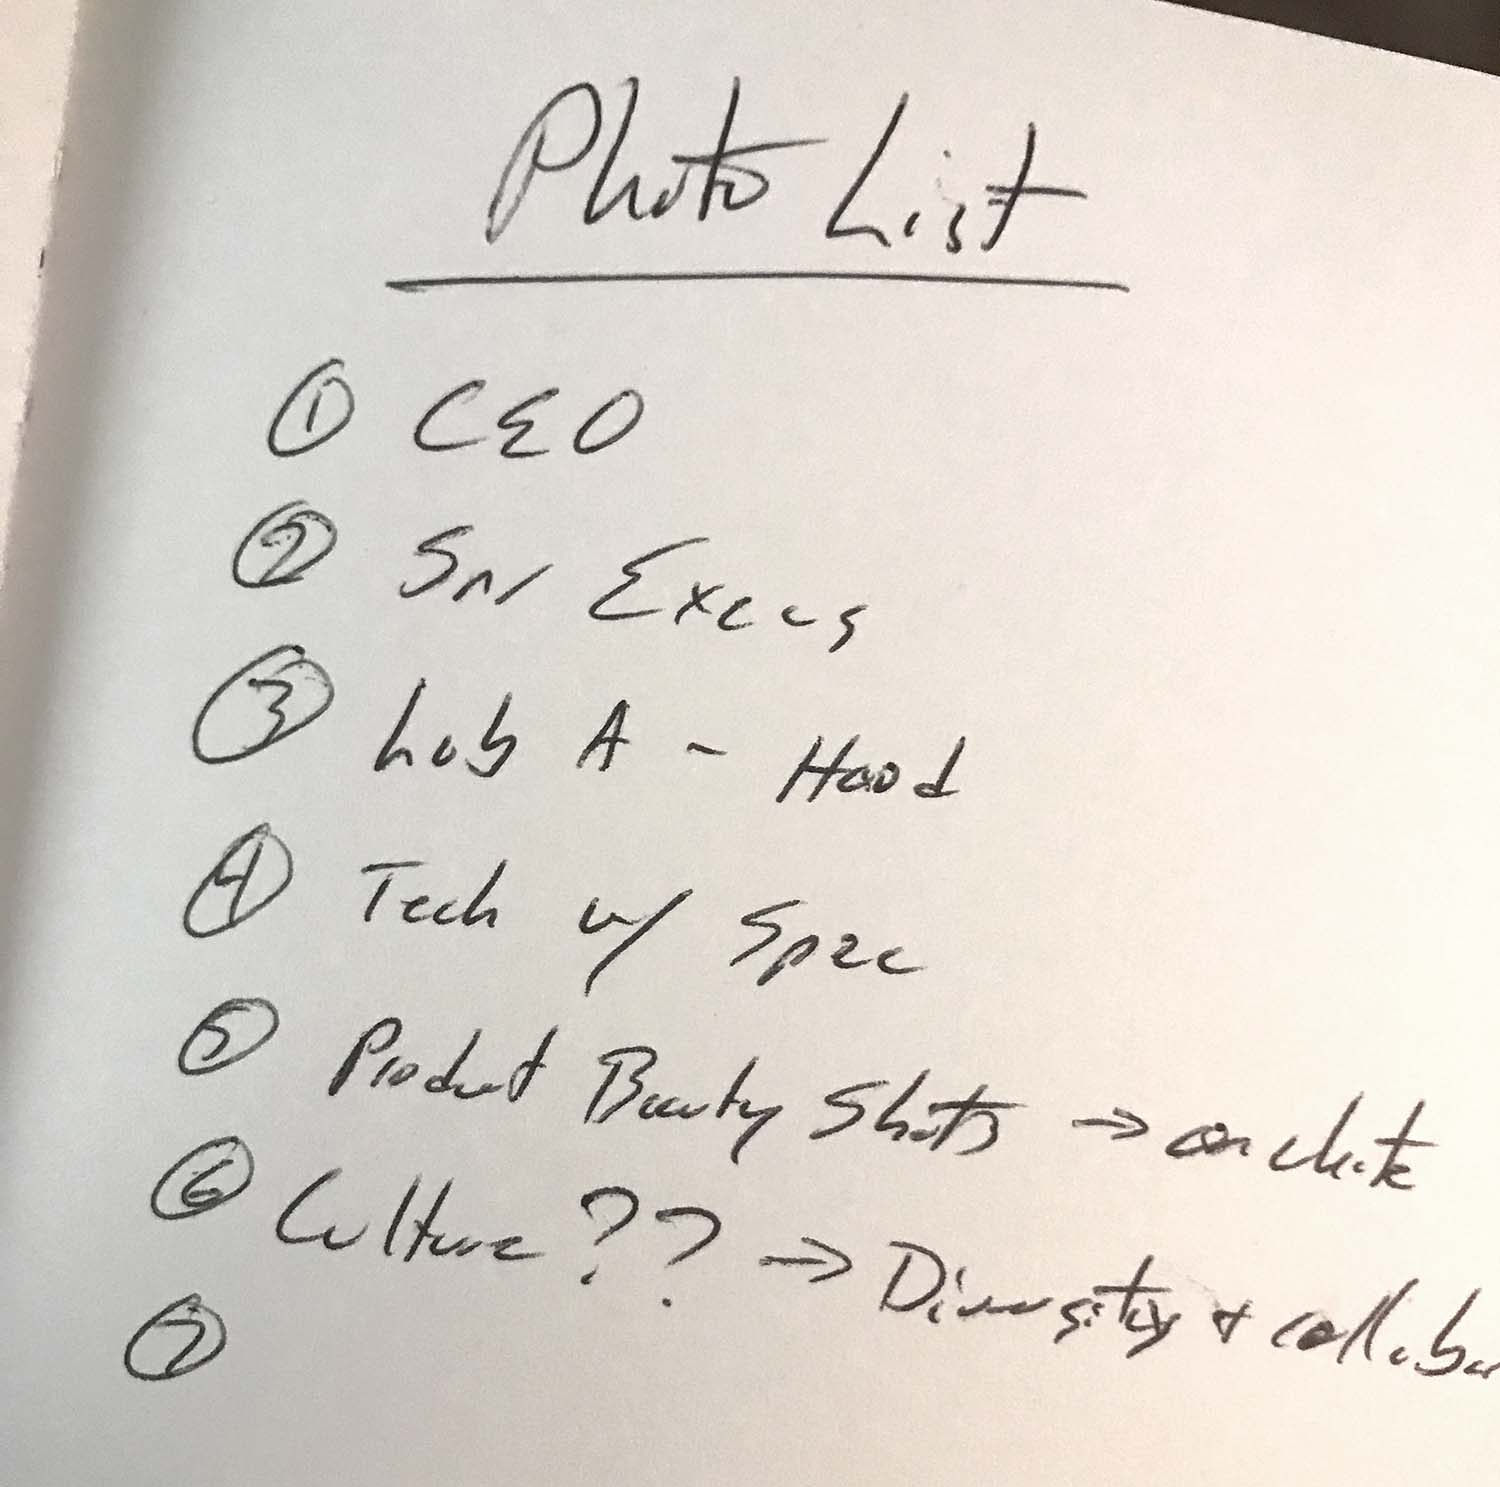 Photo List
① CEO
② Snr Execs
③ Lab A - Hood
④ Tech w/ Spec
⑤ Product Beauty Shots → on white
⑥ Culture ?? → Diversity + collabo
⑦